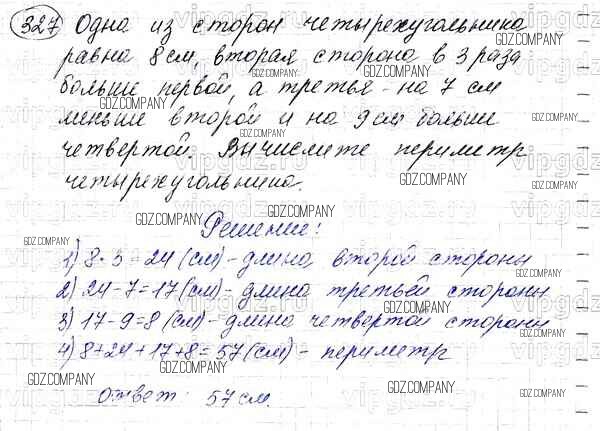 327 Одна из сторон четырехугольника
равна 8 см, вторая сторона в 3 раза
больше первой, а третья - на 7 см
меньше второй и на 9 см больше
четвертой. Вычислите периметр
четырехугольника.
Решение:
1) 8·3=24 (см) - длина второй стороны
2) 24-7=17 (см) - длина третьей стороны
3) 17-9=8 (см) - длина четвертой стороны
4) 8+24+17+8=57 (см) - периметр
Ответ: 57 см.